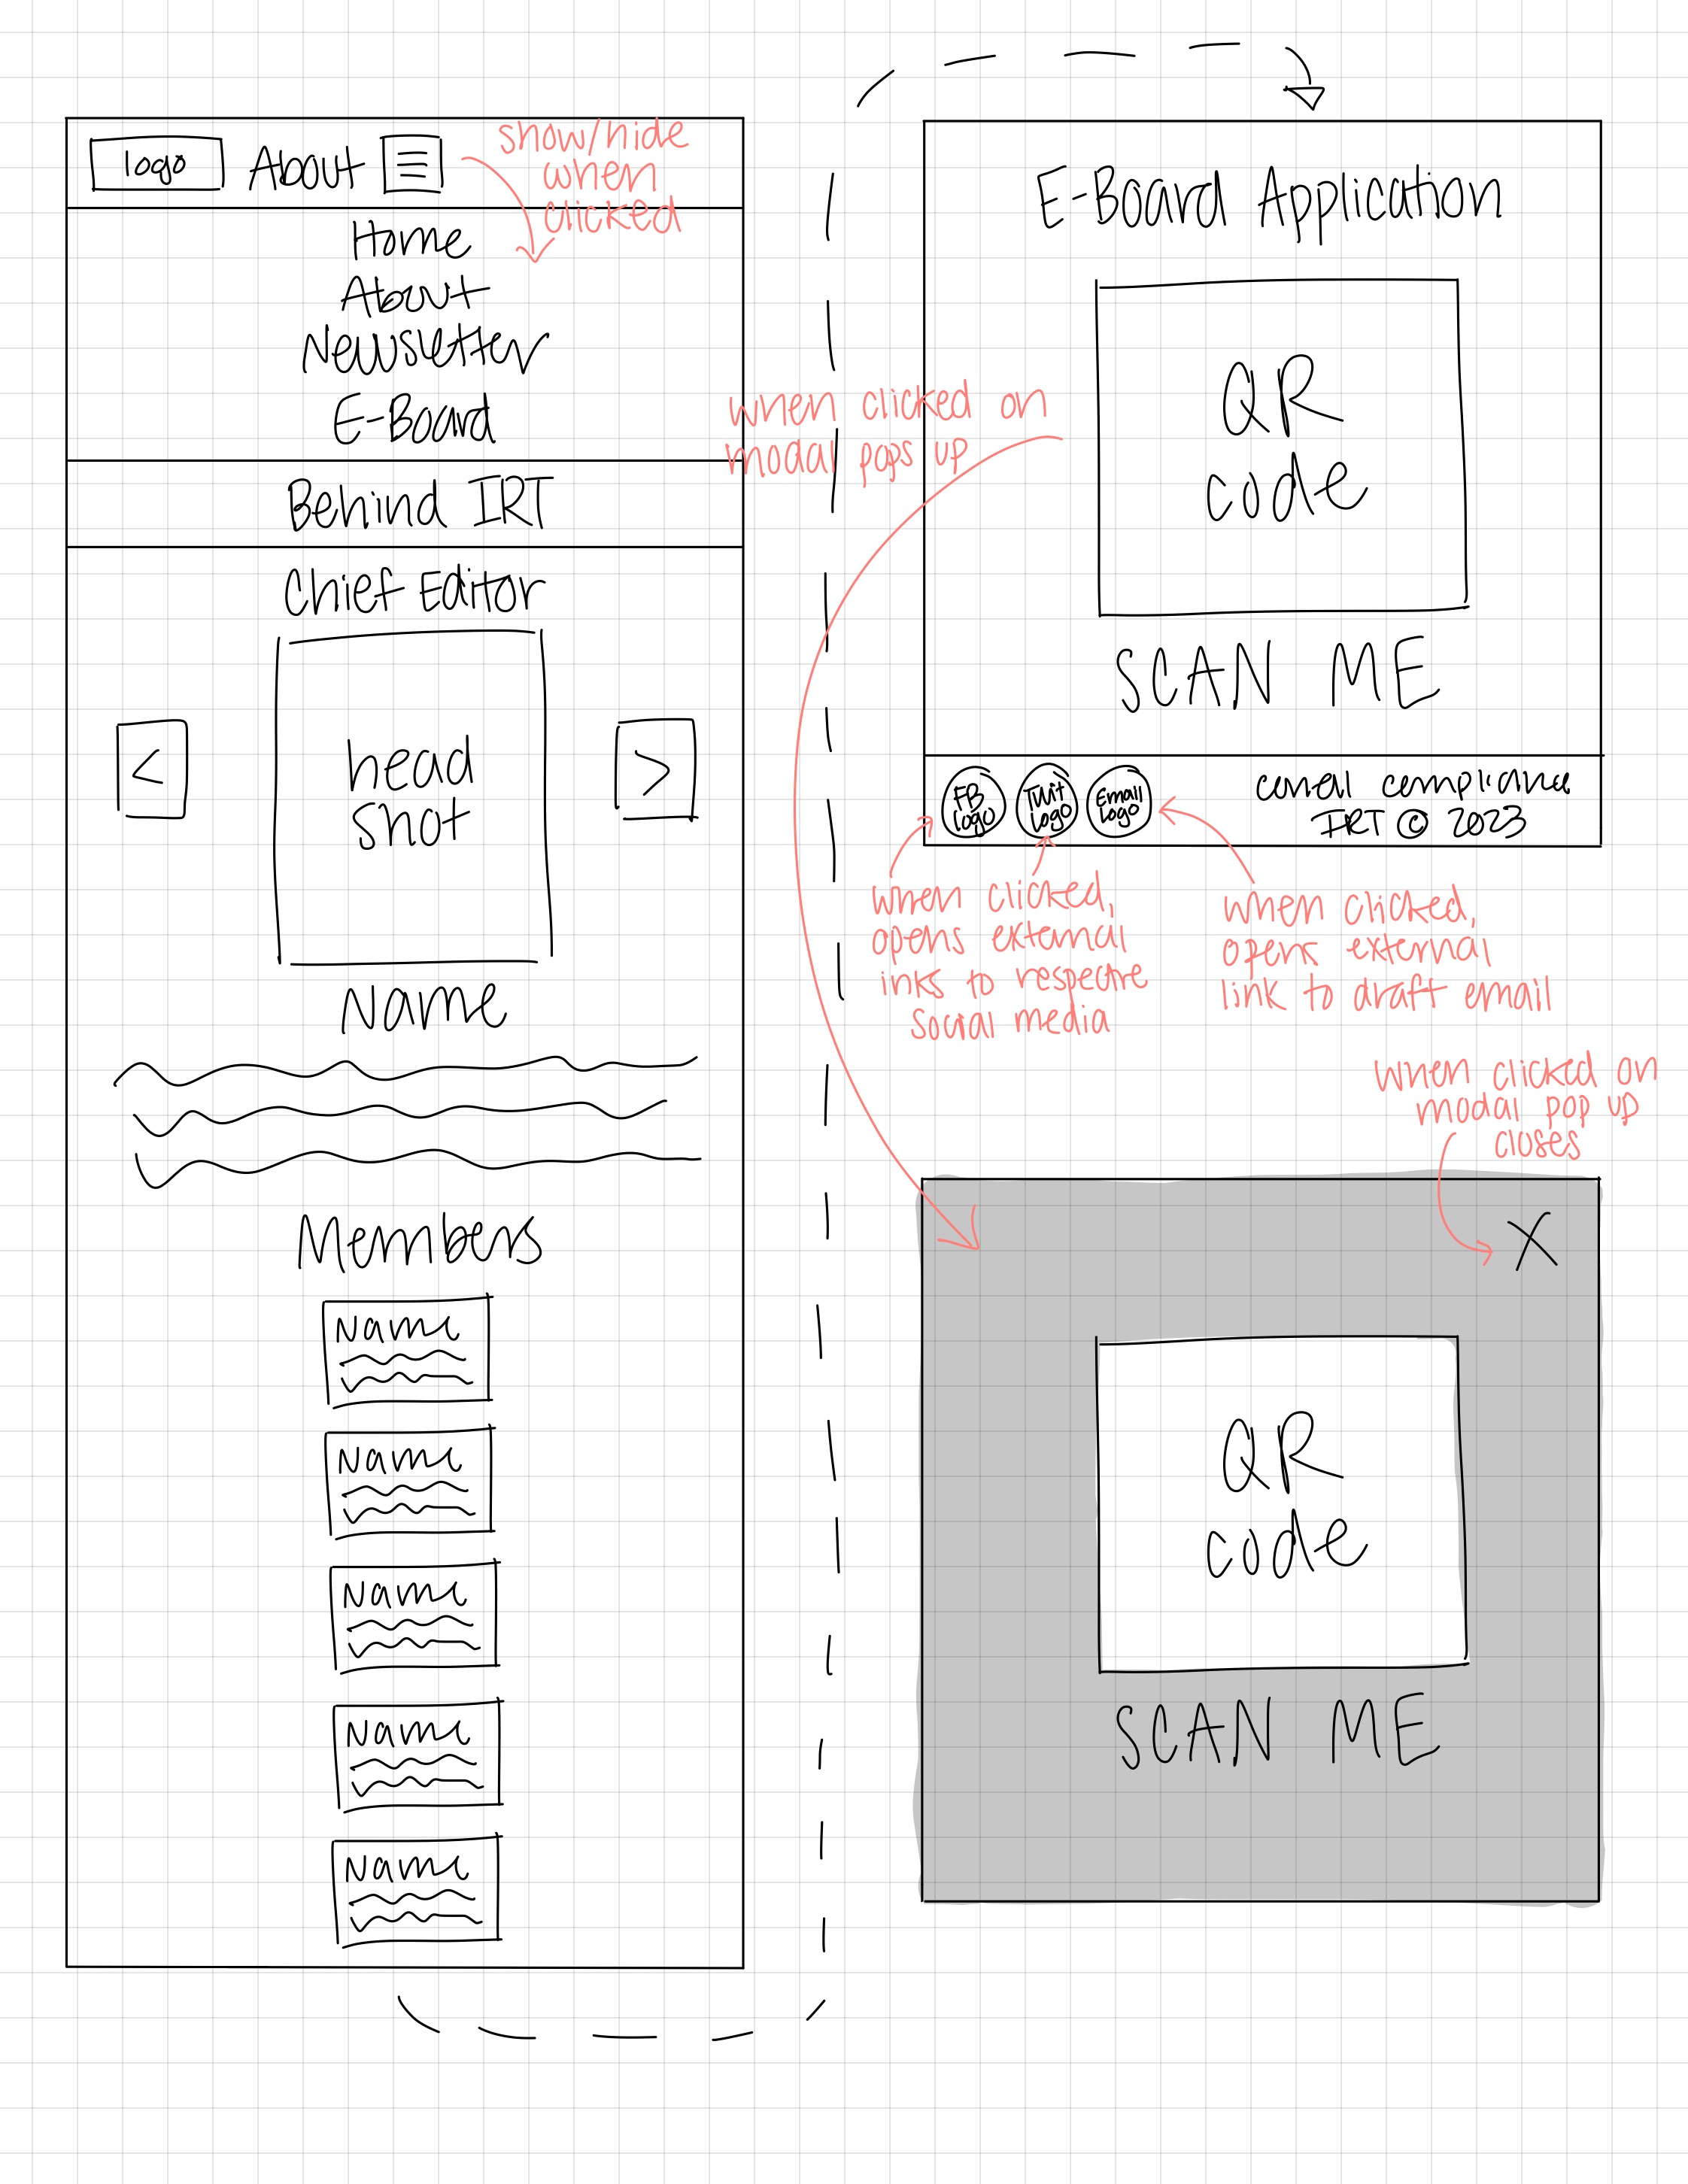 logo About
show/hide
when
clicked
Home
About
Newsletter
E-Board
Behind IRT
Chief Editor
<
head
shot
>
Name
Members
Name
Name
Name
Name
Name
E-Board Application
when clicked on
modal pops up
QR
code
SCAN ME
FB
logo
Twit
logo
Email
logo
IRT © 2023
when clicked,
opens external
inks to respective
social media
when clicked,
opens external
link to draft email
when clicked on
modal pop up
closes
X
QR
code
SCAN ME